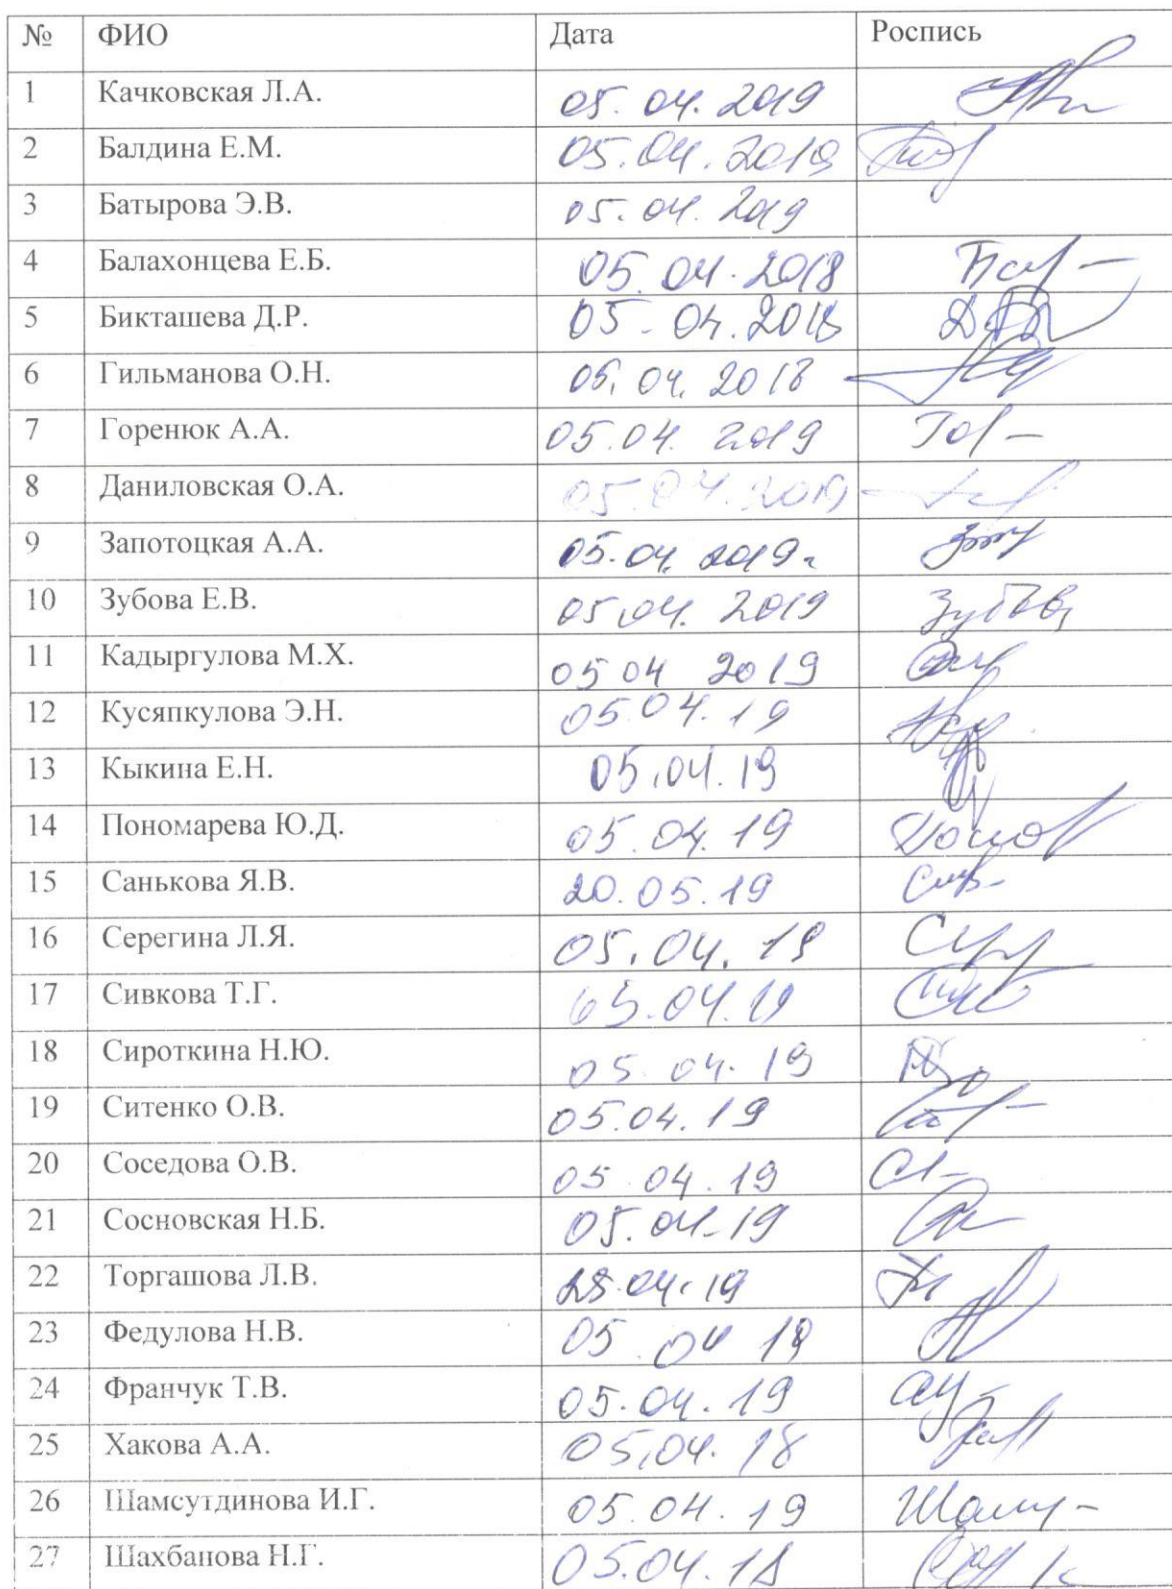 № ФИО Дата Роспись
1 Качковская Л.А. 05.04.2019
2 Балдина Е.М. 05.04.2019
3 Батырова Э.В. 05.04.2019
4 Балахонцева Е.Б. 05.04.2018
5 Бикташева Д.Р. 05.04.2018
6 Гильманова О.Н. 05.04.2018
7 Горенюк А.А. 05.04.2019
8 Даниловская О.А. 05.04.2019
9 Запотоцкая А.А. 05.04.2019г
10 Зубова Е.В. 05.04.2019
11 Кадыргулова М.Х. 05 04 2019
12 Кусяпкулова Э.Н. 05.04.19
13 Кыкина Е.Н. 05.04.19
14 Пономарева Ю.Д. 05.04.19
15 Санькова Я.В. 20.05.19
16 Серегина Л.Я. 05.04.19
17 Сивкова Т.Г. 05.04.19
18 Сироткина Н.Ю. 05.04.19
19 Ситенко О.В. 05.04.19
20 Соседова О.В. 05.04.19
21 Сосновская Н.Б. 05.04.19
22 Торгашова Л.В.
23 Федулова Н.В. 05.04 19
24 Франчук Т.В. 05.04.19
25 Хакова А.А. 05.04.18
26 Шамсутдинова И.Г. 05.04.19
27 Шахбанова Н.Г. 05.04.18